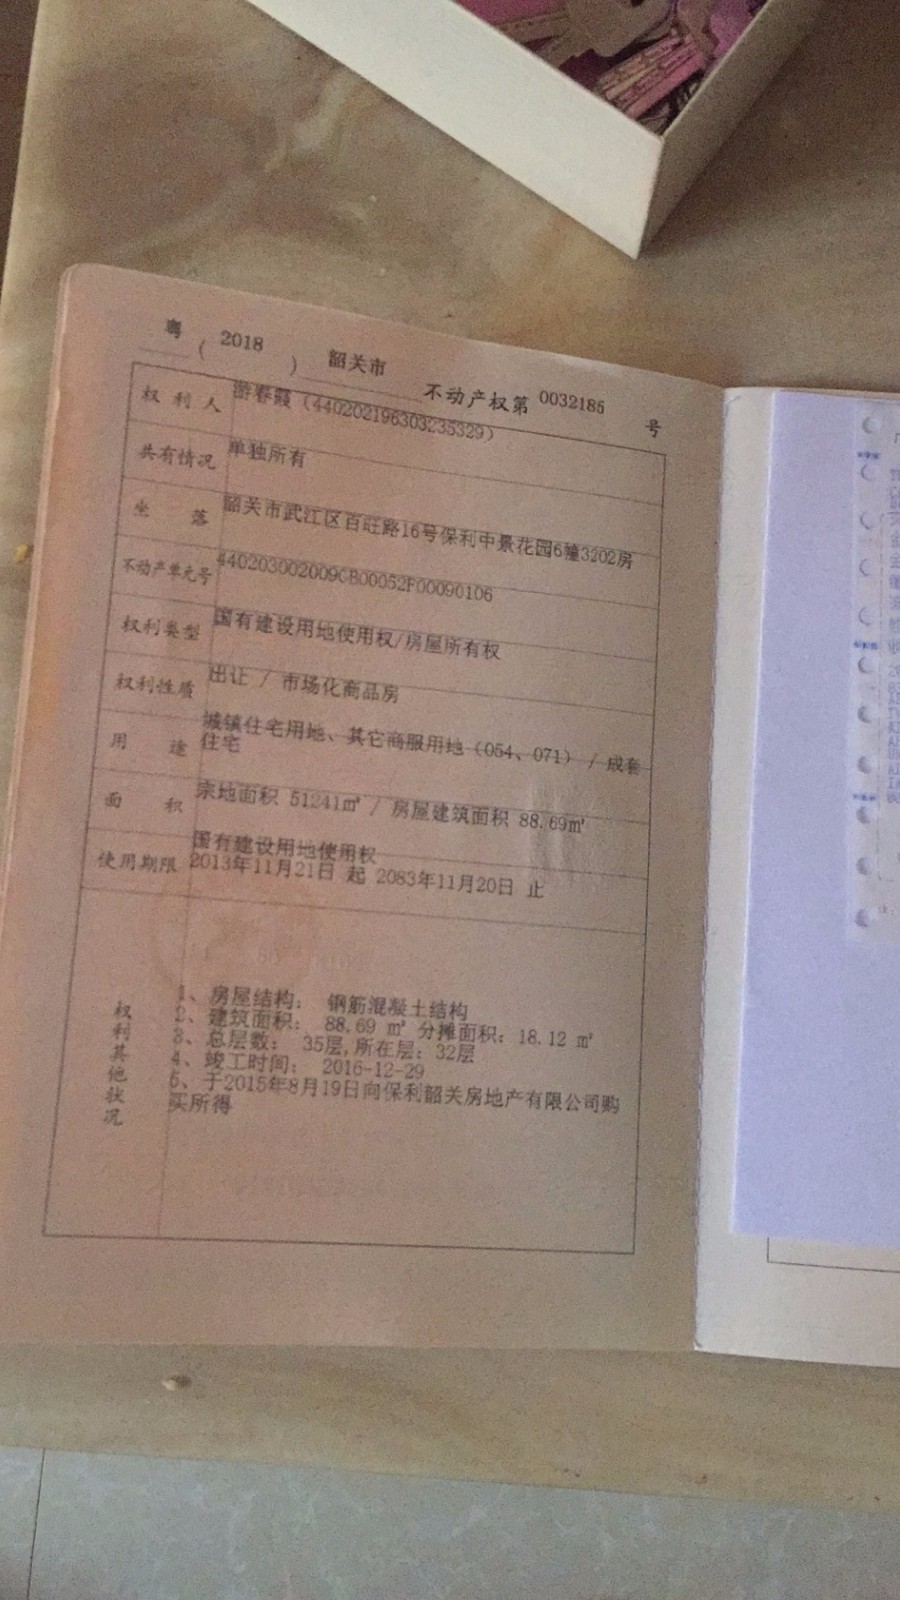 粤（2018）韶关市不动产权第0032185号
权利人 游春霞（440202196303235329）
共有情况 单独所有
坐落 韶关市武江区百旺路16号保利中景花园6幢3202房
不动产单元号 440203002009GB00052F00090106
权利类型 国有建设用地使用权/房屋所有权
权利性质 出让 / 市场化商品房
用途 城镇住宅用地、其它商服用地（054、071） / 成套
住宅
面积 宗地面积 51241㎡ / 房屋建筑面积 88.69㎡
国有建设用地使用权
使用期限 2013年11月21日 起 2083年11月20日 止
权利其他状况
1、房屋结构： 钢筋混凝土结构
2、建筑面积： 88.69 ㎡ 分摊面积：18.12 ㎡
3、总层数： 35层,所在层：32层
4、竣工时间： 2016-12-29
5、于2015年8月19日向保利韶关房地产有限公司购
买所得